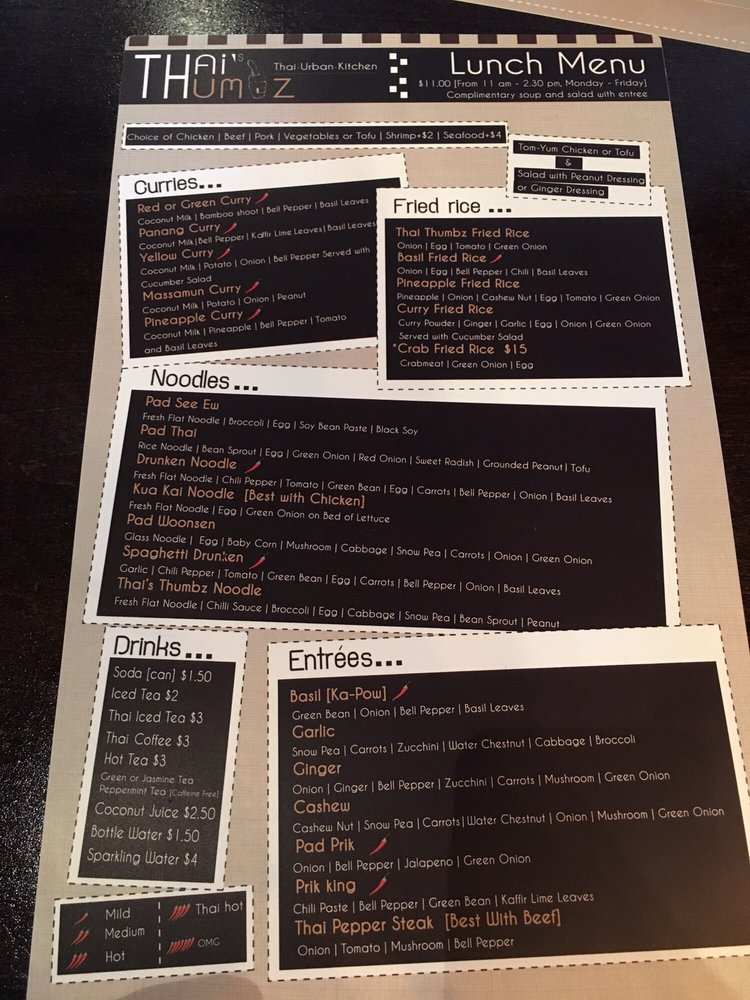 THAi's UMBZ
Thai·Urban·Kitchen
Lunch Menu
$11.00 [From 11 am - 2.30 pm, Monday - Friday]
Complimentary soup and salad with entree
Choice of Chicken | Beef | Pork | Vegetables or Tofu | Shrimp+$2 | Seafood+$4
Tom-Yum Chicken or Tofu
&
Salad with Peanut Dressing
or Ginger Dressing
Curries...
Red or Green Curry
Coconut Milk | Bamboo shoot | Bell Pepper | Basil Leaves
Panang Curry
Coconut Milk|Bell Pepper | Kaffir Lime Leaves|Basil Leaves
Yellow Curry
Coconut Milk | Potato | Onion | Bell Pepper Served with
Cucumber Salad
Massamun Curry
Coconut Milk | Potato | Onion | Peanut
Pineapple Curry
Coconut Milk | Pineapple | Bell Pepper | Tomato
and Basil Leaves
Fried rice ...
Thai Thumbz Fried Rice
Onion | Egg | Tomato | Green Onion
Basil Fried Rice
Onion | Egg | Bell Pepper | Chili | Basil Leaves
Pineapple Fried Rice
Pineapple | Onion | Cashew Nut | Egg | Tomato | Green Onion
Curry Fried Rice
Curry Powder | Ginger | Garlic | Egg | Onion | Green Onion
Served with Cucumber Salad
*Crab Fried Rice $15
Crabmeat | Green Onion | Egg
Noodles...
Pad See Ew
Fresh Flat Noodle | Broccoli | Egg | Soy Bean Paste | Black Soy
Pad Thai
Rice Noodle | Bean Sprout | Egg | Green Onion | Red Onion | Sweet Radish | Grounded Peanut | Tofu
Drunken Noodle
Fresh Flat Noodle | Chili Pepper | Tomato | Green Bean | Egg | Carrots | Bell Pepper | Onion | Basil Leaves
Kua Kai Noodle [Best with Chicken]
Fresh Flat Noodle | Egg | Green Onion on Bed of Lettuce
Pad Woonsen
Glass Noodle | Egg | Baby Corn | Mushroom | Cabbage | Snow Pea | Carrots | Onion | Green Onion
Spaghetti Drunken
Garlic | Chili Pepper | Tomato | Green Bean | Egg | Carrots | Bell Pepper | Onion | Basil Leaves
Thai's Thumbz Noodle
Fresh Flat Noodle | Chilli Sauce | Broccoli | Egg | Cabbage | Snow Pea | Bean Sprout | Peanut
Drinks...
Soda [can] $1.50
Iced Tea $2
Thai Iced Tea $3
Thai Coffee $3
Hot Tea $3
Green or Jasmine Tea
Peppermint Tea [Caffeine Free]
Coconut Juice $2.50
Bottle Water $1.50
Sparkling Water $4
Mild
Medium
Hot
Thai hot
OMG
Entrées...
Basil [Ka-Pow]
Green Bean | Onion | Bell Pepper | Basil Leaves
Garlic
Snow Pea | Carrots | Zucchini | Water Chestnut | Cabbage | Broccoli
Ginger
Onion | Ginger | Bell Pepper | Zucchini | Carrots | Mushroom | Green Onion
Cashew
Cashew Nut | Snow Pea | Carrots | Water Chestnut | Onion | Mushroom | Green Onion
Pad Prik
Onion | Bell Pepper | Jalapeno | Green Onion
Prik king
Chili Paste | Bell Pepper | Green Bean | Kaffir Lime Leaves
Thai Pepper Steak [Best With Beef]
Onion | Tomato | Mushroom | Bell Pepper